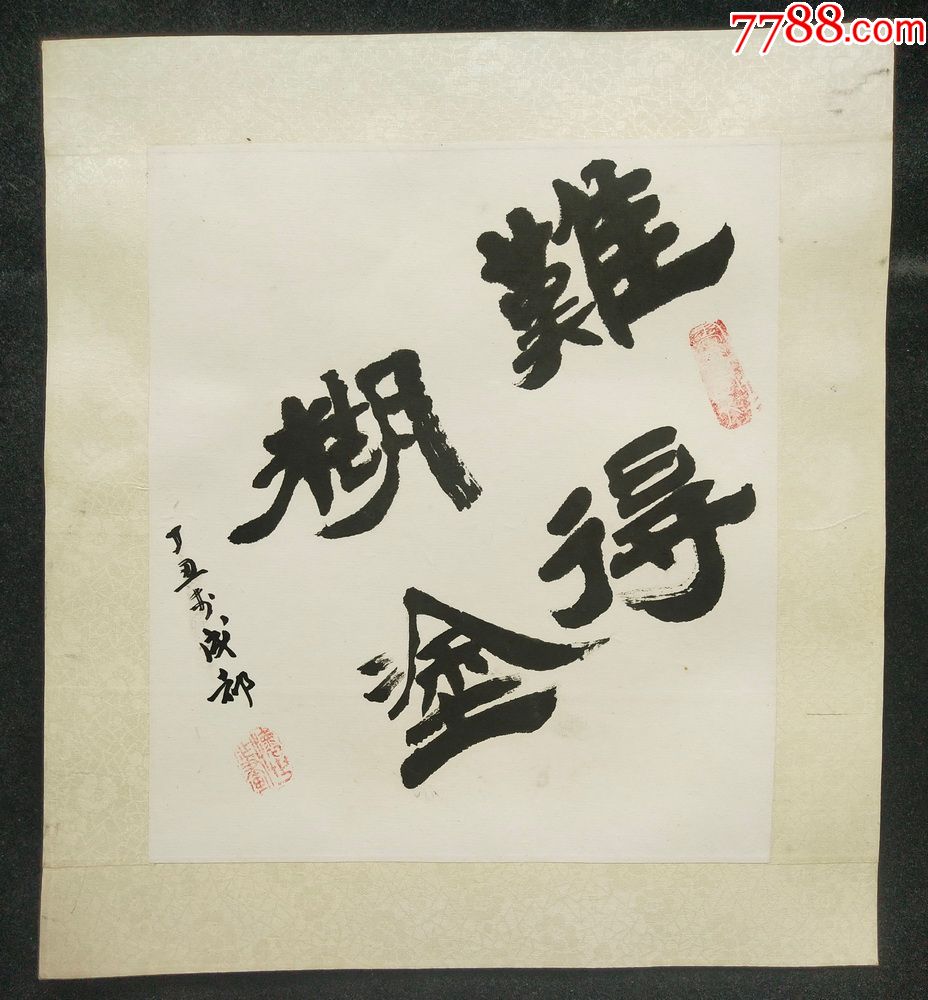 7788.com
難得
糊塗
丁丑於成都